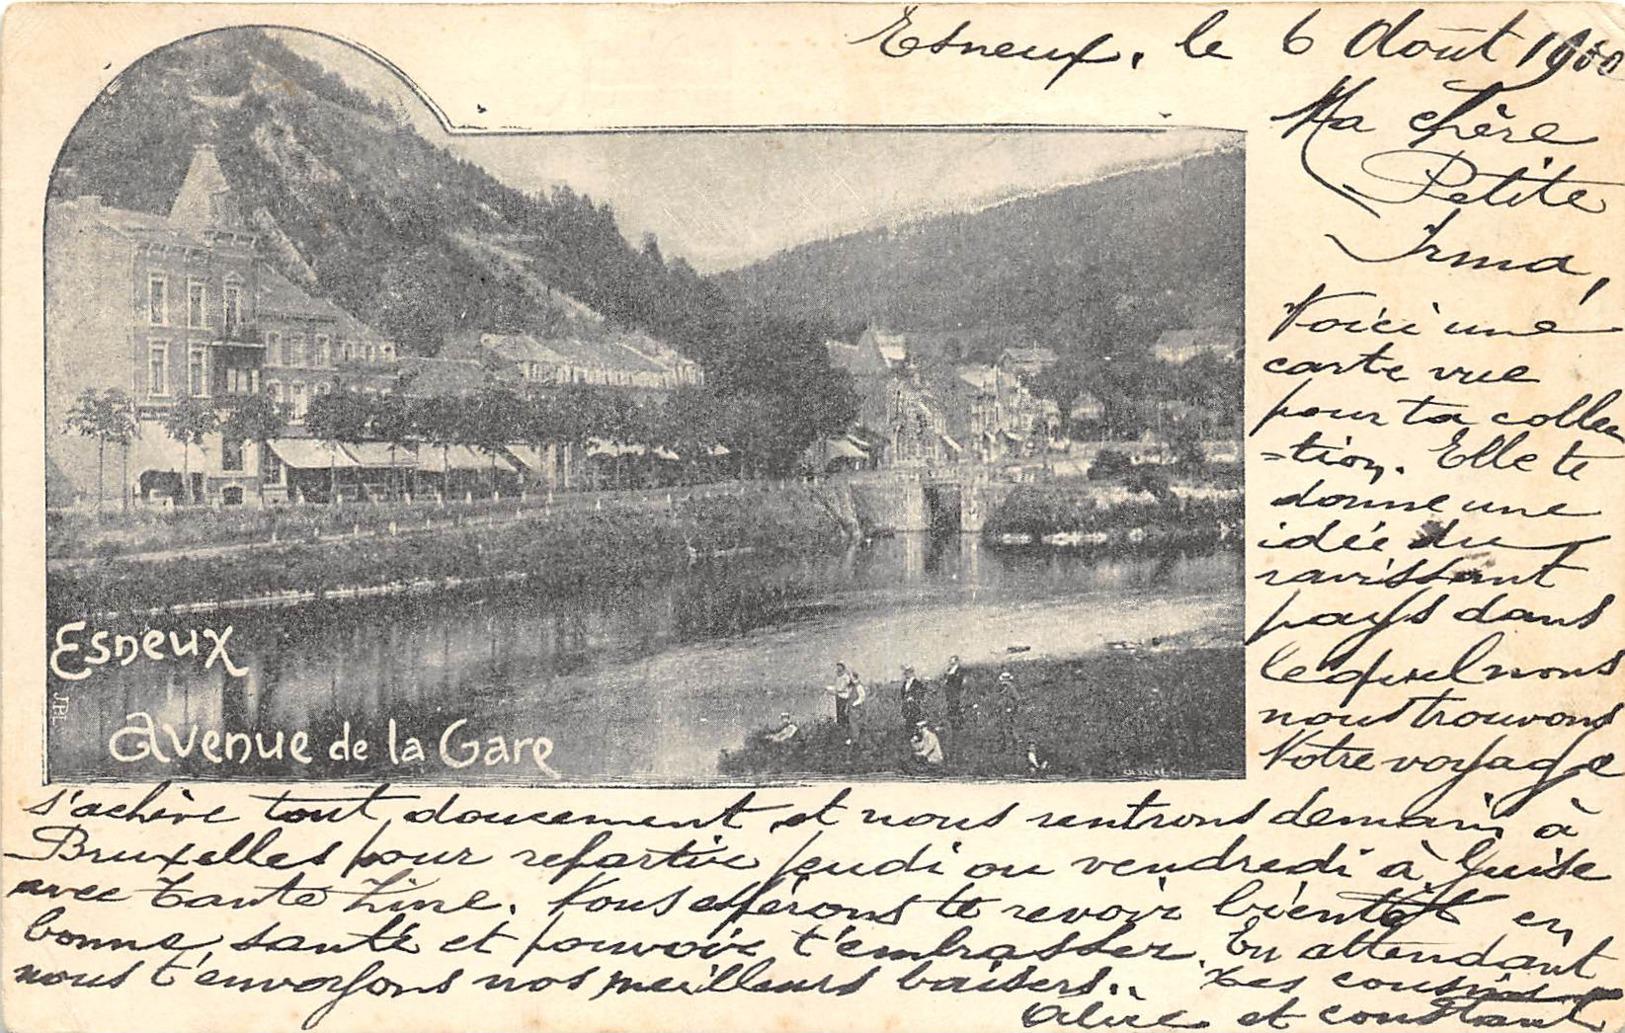 Esneux, le 6 Août 1900
Ma chère
Petite
Irma,
Voici une
carte vue
pour ta collec
=tion. Elle te
donne une
idée du
ravissant
pays dans
lequel nous
nous trouvons
Notre voyage
s'achève tout doucement et nous rentrons demain à
Bruxelles pour repartir jeudi ou vendredi à Guise
avec Tante Line. Nous espérons te revoir bientôt en
bonne santé et pouvoir t'embrasser. En attendant
nous t'envoyons nos meilleurs baisers..
Tes cousins
et Constant
Esneux
Avenue de la Gare